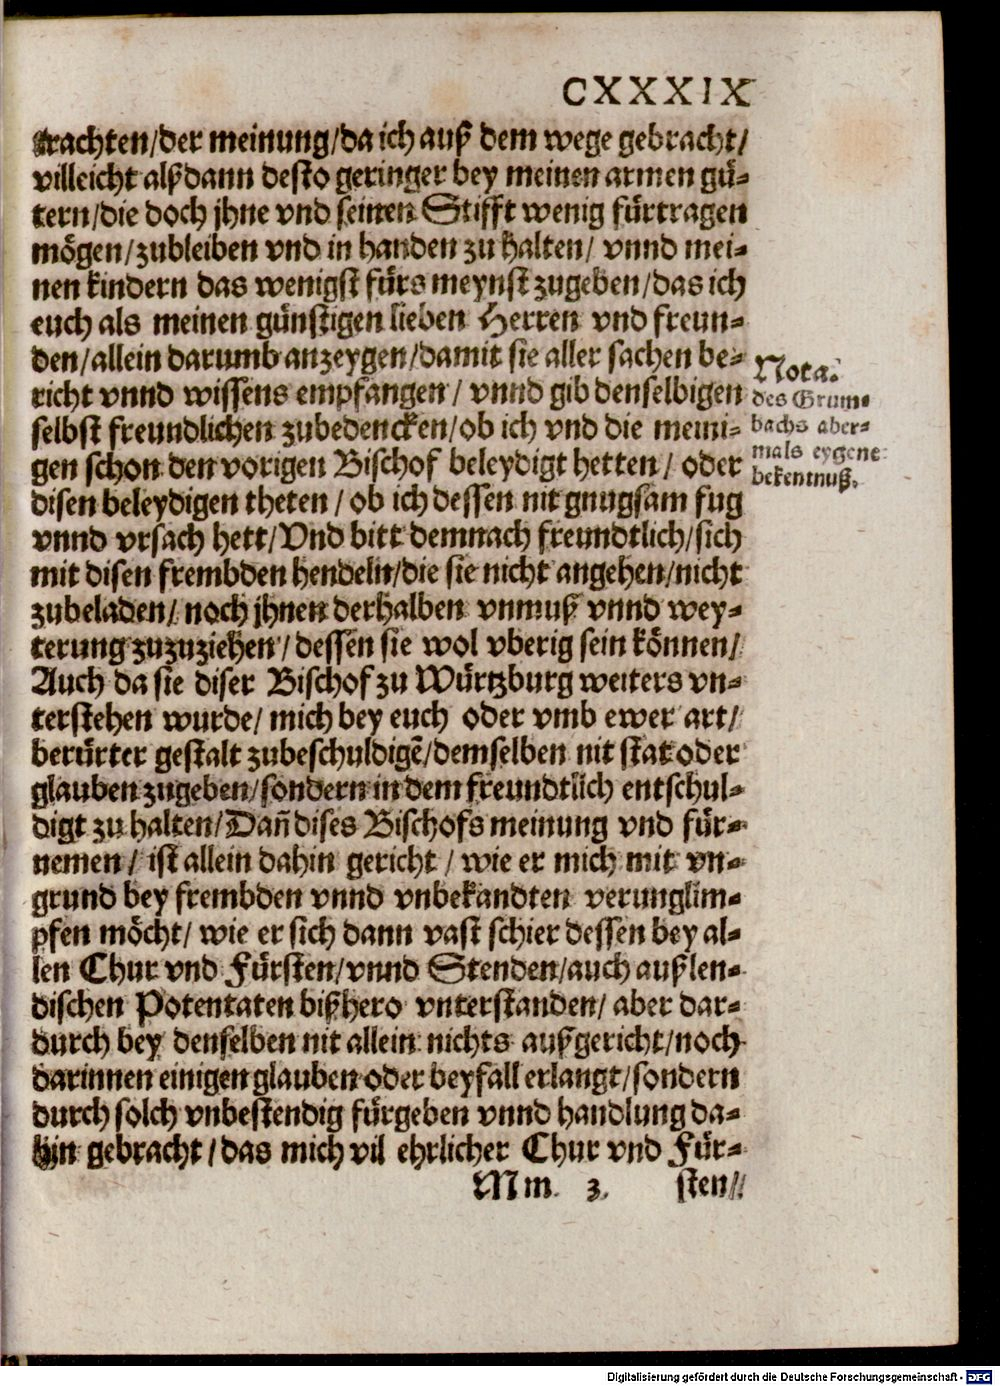 CXXXIX
trachten/der meinung/da ich auß dem wege gebracht/
villeicht alßdann desto geringer bey meinen armen gü-
tern/die doch jhne vnd seinen Stifft wenig fürtragen
mögen/zubleiben vnd in handen zu halten/ vnnd mei-
nen kindern das wenigst fürs meynst zugeben/das ich
euch als meinen günstigen lieben Herren vnd freun-
den/allein darumb anzeygen/damit sie aller sachen be-
richt vnnd wissens empfangen/ vnnd gib denselbigen
selbst freundlichen zubedencken/ob ich vnd die meini-
gen schon den vorigen Bischof beleydigt hetten/ oder
disen beleydigen theten/ ob ich dessen nit gnugsam fug
vnnd vrsach hett/Vnd bitt demnach freundtlich/sich
mit disen frembden hendeln/die sie nicht angehen/nicht
zubeladen/ noch jhnen derhalben vnmuß vnnd wey-
terung zuzuziehen/ dessen sie wol vberig sein können/
Auch da sie diser Bischof zu Würtzburg weiters vn-
terstehen wurde/ mich bey euch oder vmb ewer art/
berürter gestalt zubeschuldigē/demselben nit stat oder
glauben zugeben/sondern in dem freundtlich entschul-
digt zu halten/Dañ dises Bischofs meinung vnd für-
nemen/ ist allein dahin gericht/ wie er mich mit vn-
grund bey frembden vnnd vnbekandten verunglim-
pfen möcht/ wie er sich dann vast schier dessen bey al-
len Chur vnd Fürsten/vnnd Stenden/auch außlen-
dischen Potentaten bißhero vnterstanden/ aber dar-
durch bey denselben nit allein nichts außgericht/noch
darinnen einigen glauben oder beyfall erlangt/sondern
durch solch vnbestendig fürgeben vnnd handlung da-
hin gebracht/das mich vil ehrlicher Chur vnd Für-
Mm 3. sten/
Nota.
des Grum-
bachs aber-
mals eygene
bekentnuß.
Digitalisierung gefördert durch die Deutsche Forschungsgemeinschaft - DFG